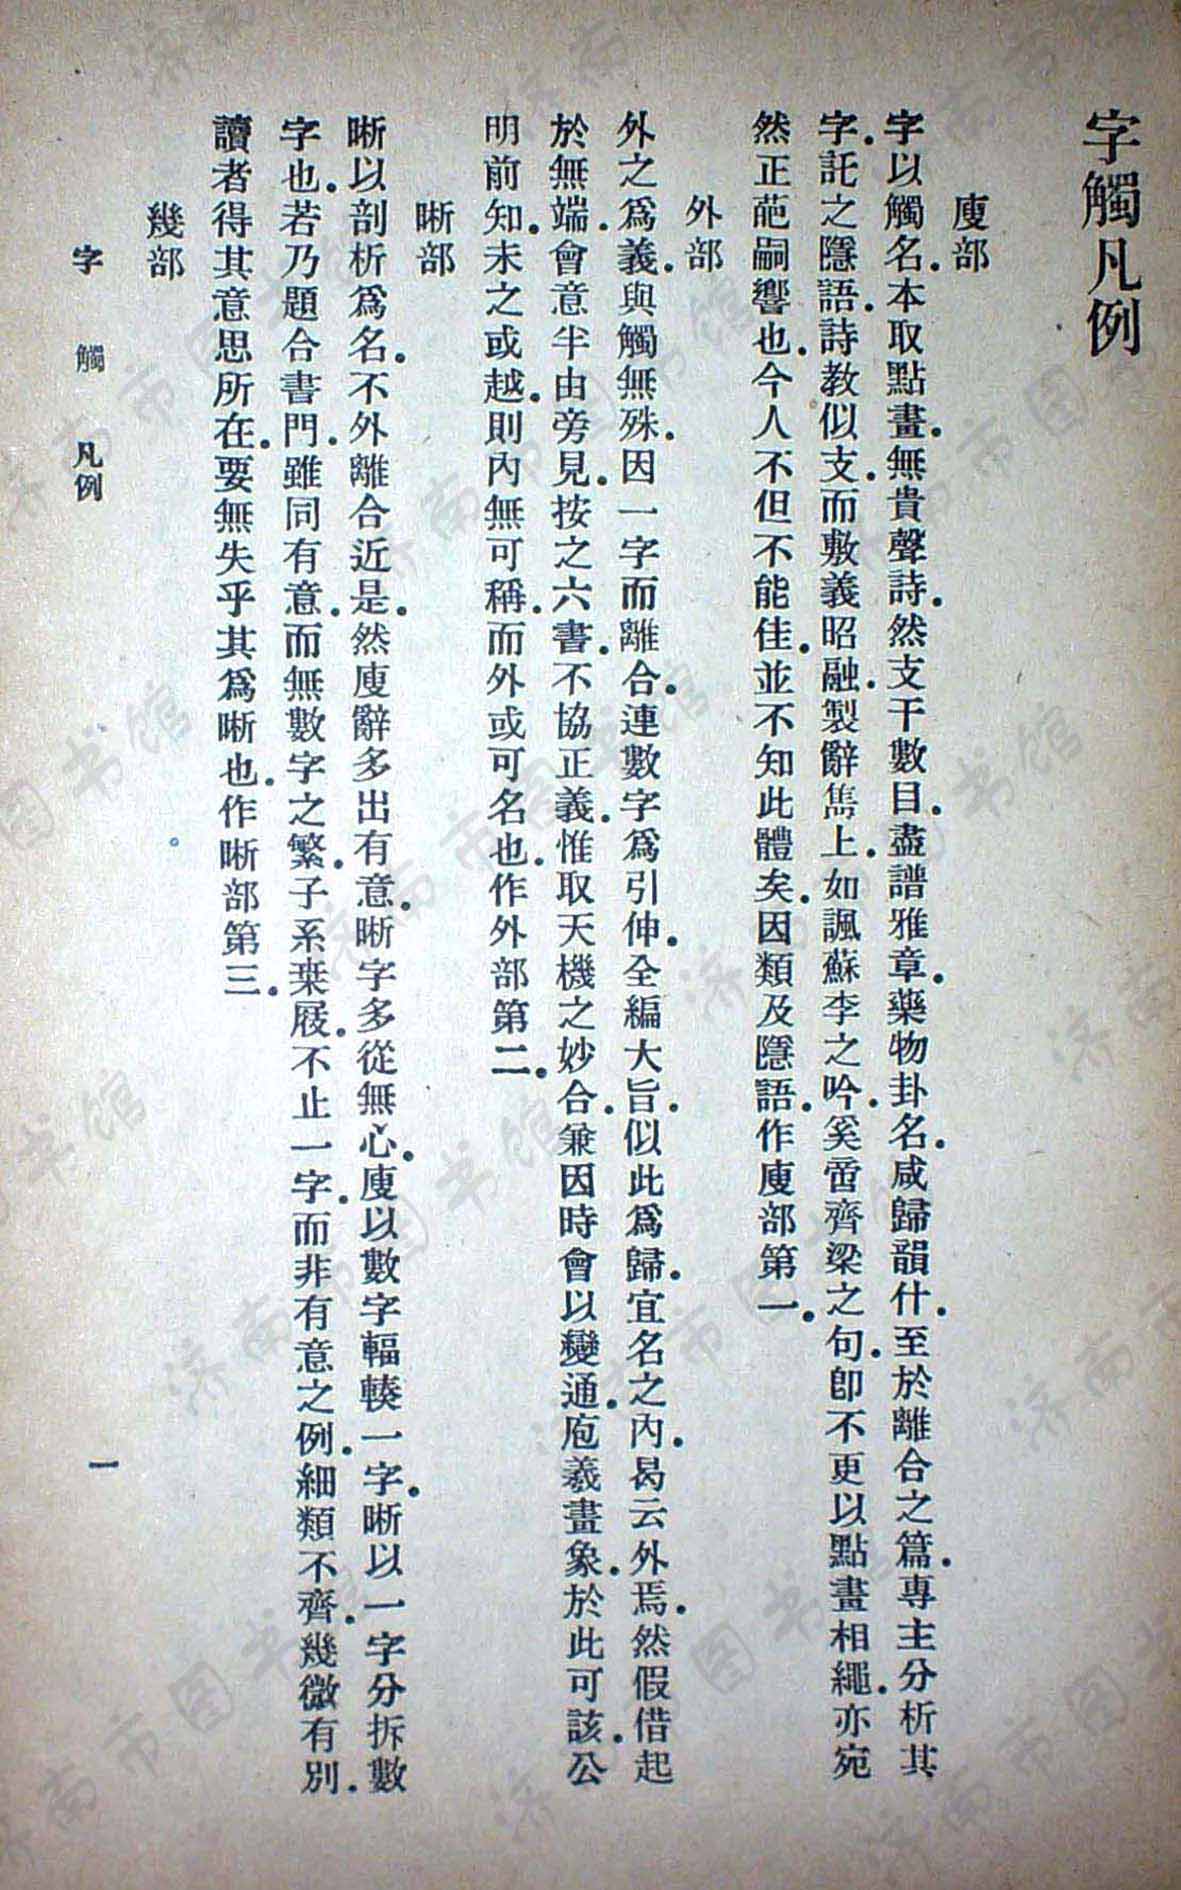 字觸凡例
廋部
字以觸名.本取點畫.無貴聲詩.然支干數目.盡譜雅章.藥物卦名.咸歸韻什.至於離合之篇.專主分析其
字.託之隱語.詩教似支.而敷義昭融.製辭雋上.如諷蘇李之吟.奚啻齊梁之句.卽不更以點畫相繩.亦宛
然正葩嗣響也.今人不但不能佳.並不知此體矣.因類及隱語.作廋部第一.
外部
外之爲義.與觸無殊.因一字而離合.連數字爲引伸.全編大旨.似此爲歸.宜名之內.曷云外焉.然假借起
於無端.會意半由旁見.按之六書.不協正義.惟取天機之妙合.兼因時會以變通.庖羲畫象.於此可該.公
明前知.未之或越.則內無可稱.而外或可名也.作外部第二.
晰部
晰以剖析爲名.不外離合近是.然廋辭多出有意.晰字多從無心.廋以數字輻輳一字.晰以一字分拆數
字也.若乃題合書門.雖同有意.而無數字之繁.子系來屐.不止一字.而非有意之例.細類不齊.幾微有別.
讀者得其意思所在.要無失乎其爲晰也.作晰部第三.
幾部
字觸 凡例 一
济南市图书馆